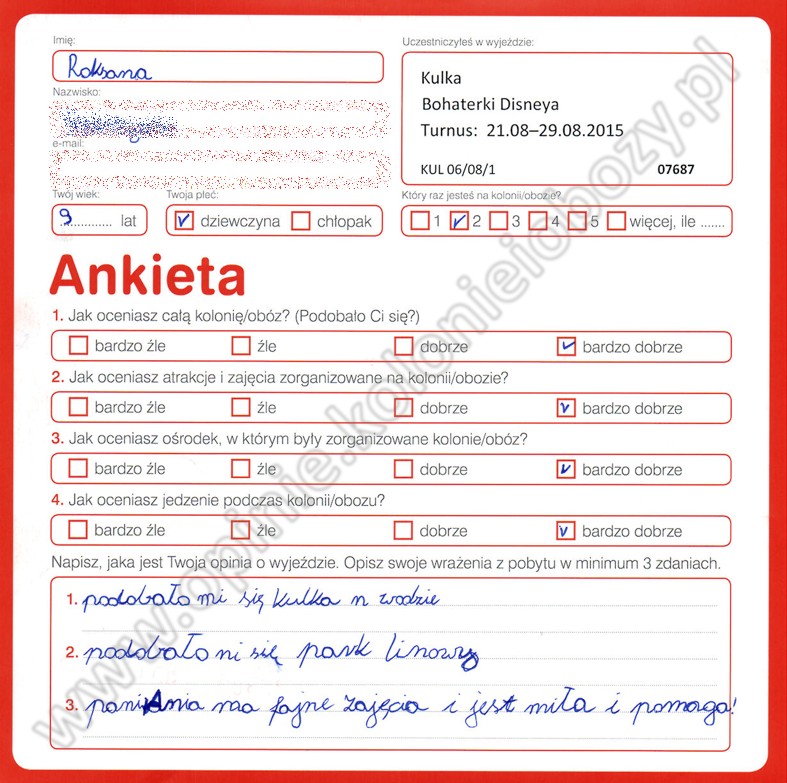 Imię:
Roksana
Uczestniczyłeś w wyjeździe:
Kulka
Bohaterki Disneya
Turnus: 21.08–29.08.2015
KUL 06/08/1 07687
Nazwisko:
e-mail:
Twój wiek:
9 lat
Twoja płeć:
dziewczyna chłopak
Który raz jesteś na kolonii/obozie?
1 2 3 4 5 więcej, ile .......
Ankieta
1. Jak oceniasz całą kolonię/obóz? (Podobało Ci się?)
bardzo źle źle dobrze bardzo dobrze
2. Jak oceniasz atrakcje i zajęcia zorganizowane na kolonii/obozie?
bardzo źle źle dobrze bardzo dobrze
3. Jak oceniasz ośrodek, w którym były zorganizowane kolonie/obóz?
bardzo źle źle dobrze bardzo dobrze
4. Jak oceniasz jedzenie podczas kolonii/obozu?
bardzo źle źle dobrze bardzo dobrze
Napisz, jaka jest Twoja opinia o wyjeździe. Opisz swoje wrażenia z pobytu w minimum 3 zdaniach.
1. podobało mi się kulka n wodzie
2. podobało ni się park linowy
3. pani Ania ma fajne zajęcia i jest miła i pomaga!
www.opinie.kolonieiobozy.pl